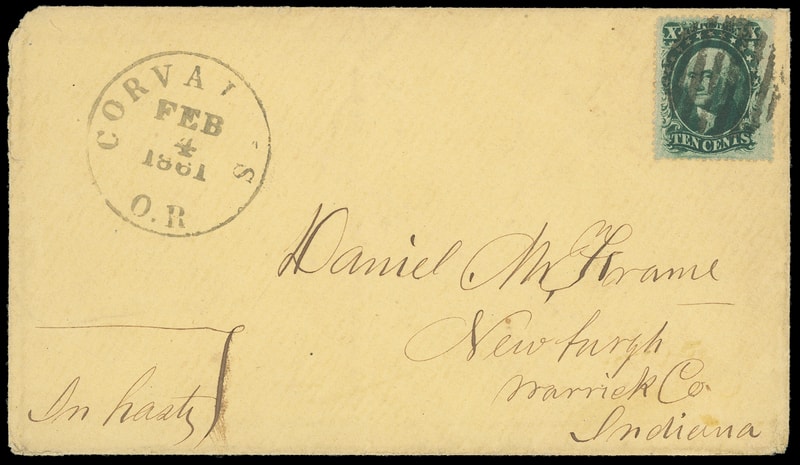 CORVAL S
FEB
4
1861
O.R
X X
TEN CENTS.
Daniel M. Frame
Newburgh
Warrick Co.
Indiana
In haste